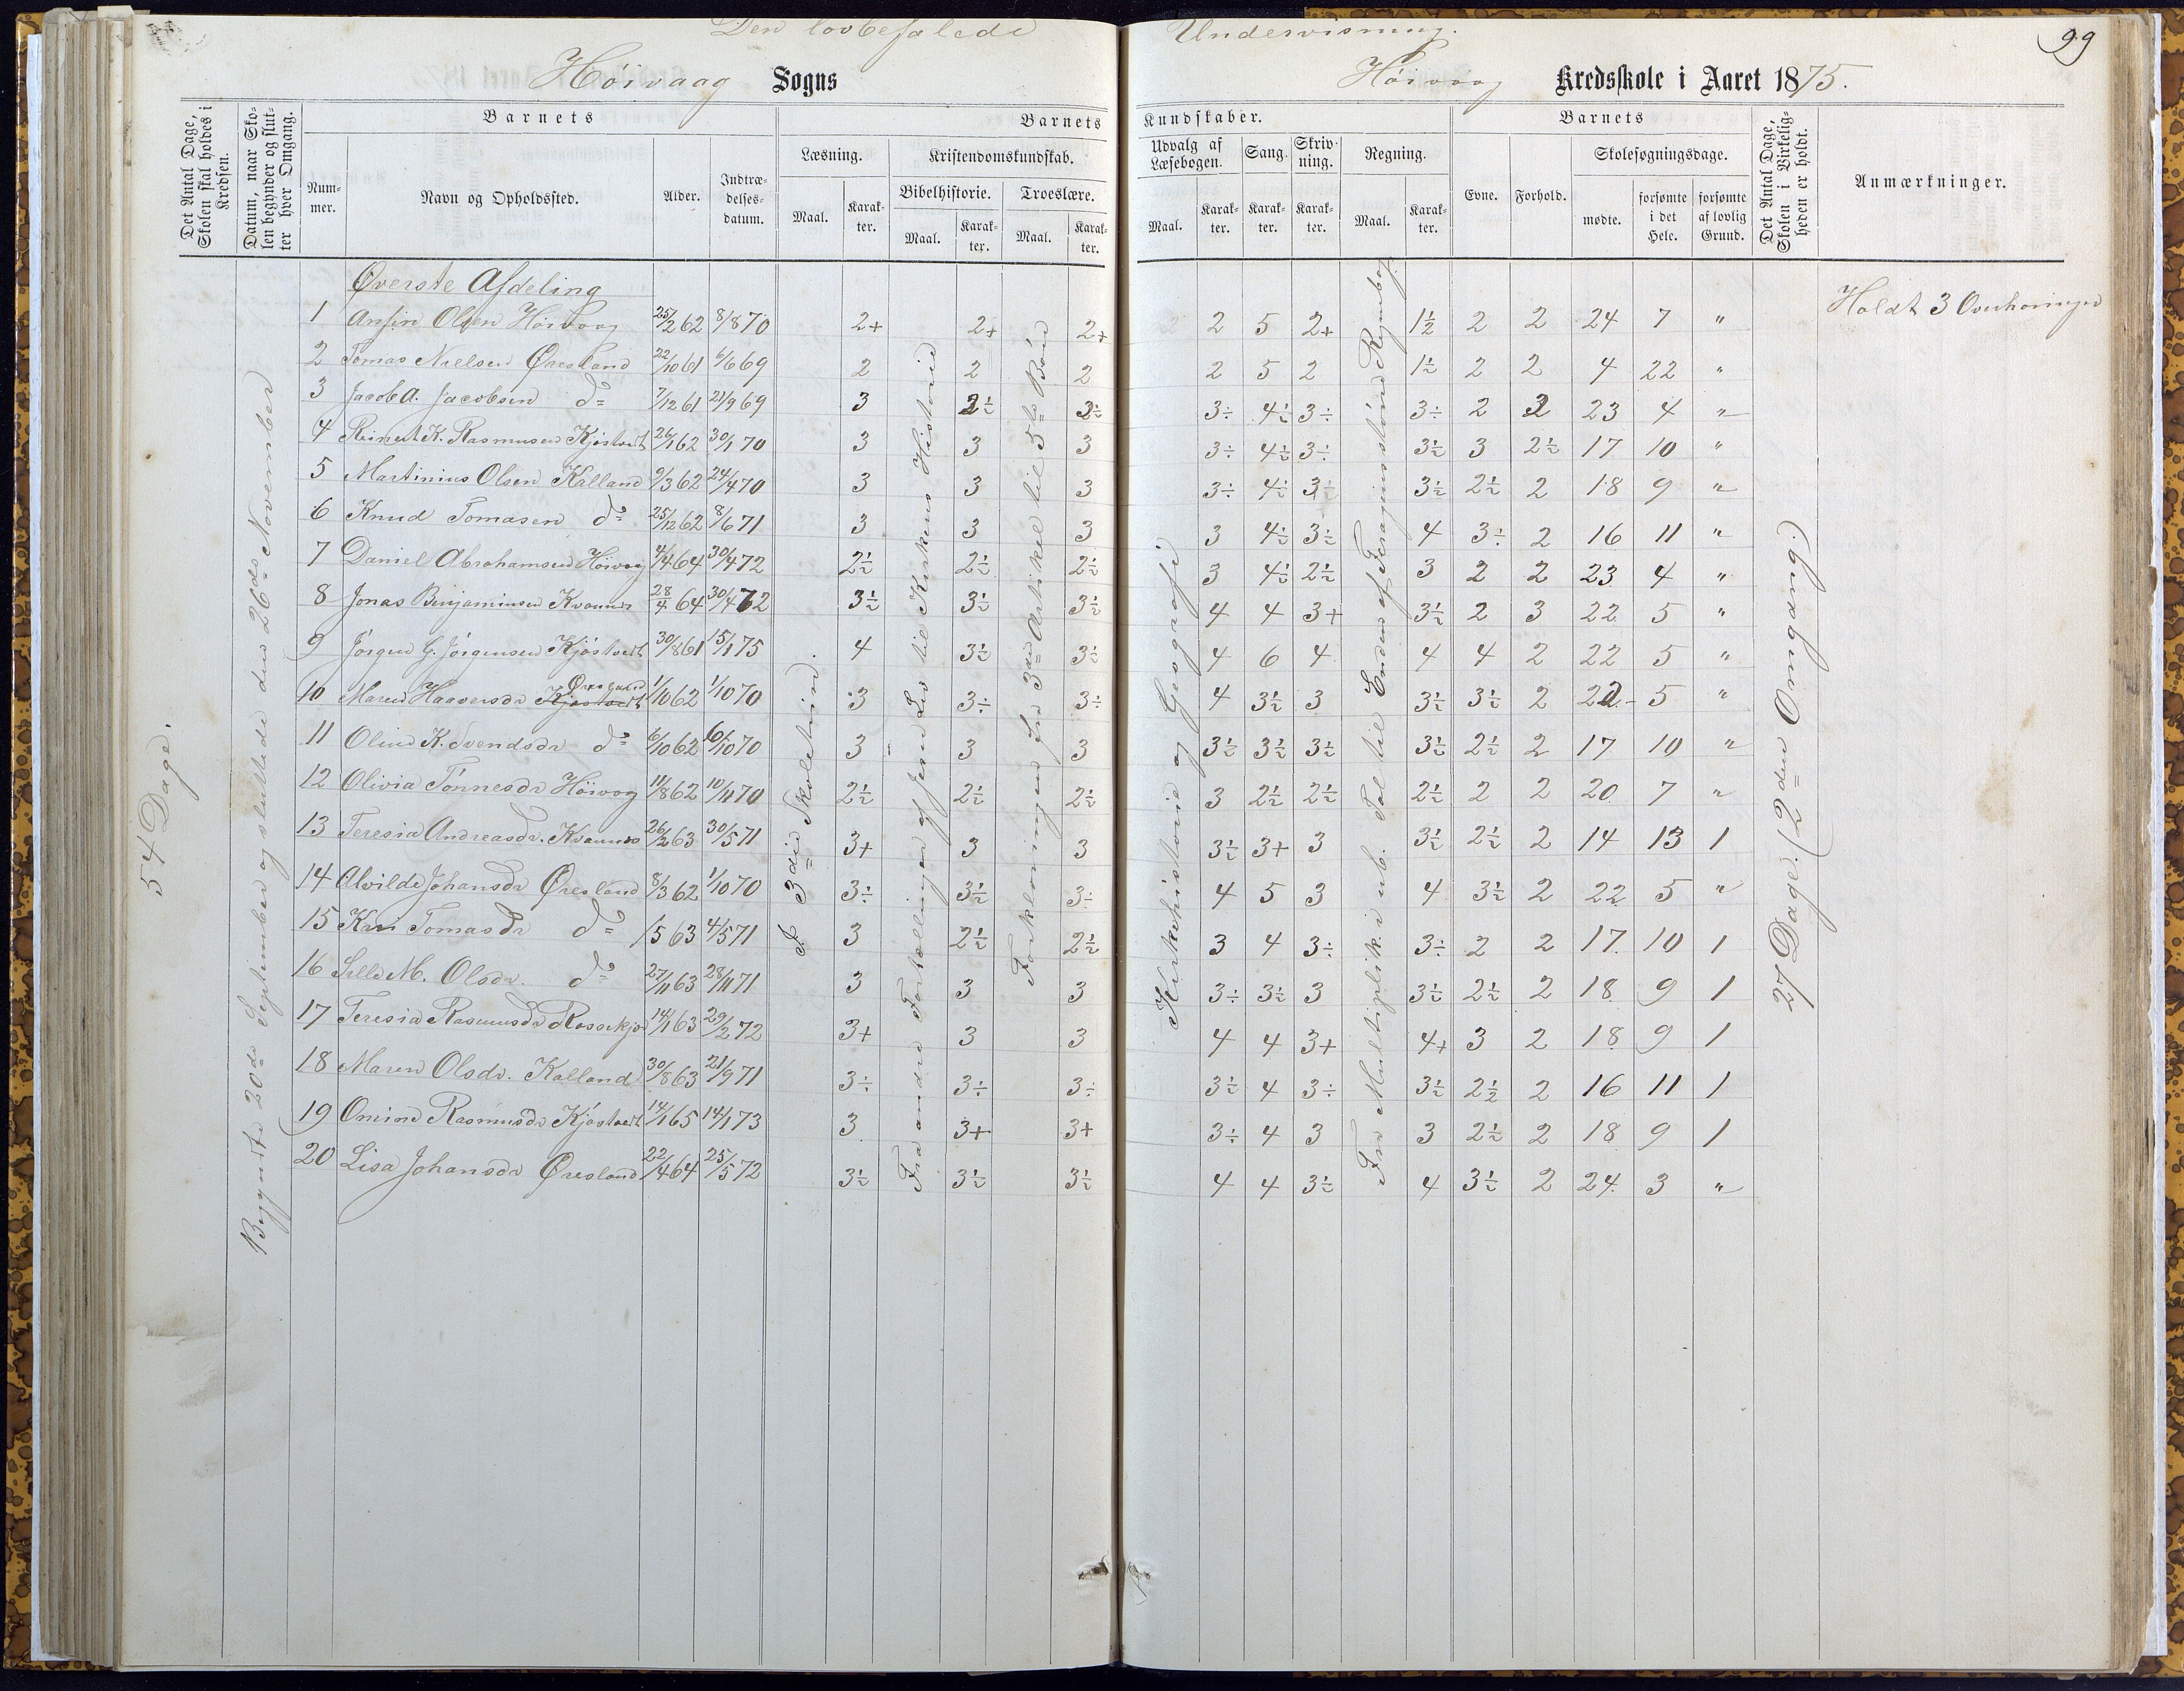 Den lovbefalede Undervisning.
99
Höivaag Sogns Höivaag Kredsskole i Aaret 1875.
Det Antal Dage, Skolen skal holdes i Kredsen.
Datum, naar Skolen begynder og slutter hver Omgang.
Barnets
Barnets Kundskaber.
Barnets
Det Antal Dage, Skolen i Virkeligheden er holdt.
Anmærkninger.
Nummer.
Navn og Opholdssted.
Alder.
Indtrædelsesdatum.
Læsning.
Kristendomskundskab.
Udvalg af Læsebogen.
Sang.
Skrivning.
Regning.
Evne.
Forhold.
Skolesøgningsdage.
Bibelhistorie.
Troeslære.
Maal. Karakter. Maal. Karakter. Maal. Karakter. Maal. Karakter. Karakter. Karakter. Maal. Karakter.
mødte. forsømte i det Hele. forsømte af lovlig Grund.
54 Dage.
Begyndte 20de September og sluttede den 26de November
I 3die Skoletrin.
Fra andre Fortællinger af Jesu Liv til Kirkens Historie
Forklaringen fra 3die Artikel til 5te Bøn
Kirkehistorie og Geografi
Fra Multiplik. i ub. Tal til Enden af Regnebog
27 Dage. (2den Omgang.)
Holdt 3 Overhøringer
Øverste Afdeling
1 Ansin Olsen Höivaag 25/2 62 8/8 70 2+ 2+ 2+ 2 5 2+ 1½ 2 2 24 7 "
2 Tomas Nielsen Øresland 22/10 61 6/6 69 2 2 2 2 5 2 1½ 2 2 4 22 "
3 Jacob A. Jacobsen do 7/12 61 21/9 69 3 2½ 3½ 3÷ 4½ 3÷ 3÷ 2 2 23 4 "
4 Reinert K. Rasmusen Kjöstvedt 26/1 62 30/1 70 3 3 3 3÷ 4½ 3÷ 3½ 3 2½ 17 10 "
5 Martinius Olsen Kalland 9/3 62 24/4 70 3 3 3 3÷ 4½ 3½ 3½ 2½ 2 18 9 "
6 Knud Tomasen do 25/12 62 8/6 71 3 3 3 3 4½ 3½ 4 3÷ 2 16 11 "
7 Daniel Abrahamsen Höivaag 4/4 64 30/4 72 2½ 2½ 2½ 3 4½ 2½ 3 2 2 23 4 "
8 Jonas Benjaminsen Kvannes 28/4 64 30/4 72 3½ 3½ 3½ 4 4 3+ 3½ 2 3 22 5 "
9 Jörgen G. Jörgensen Kjöstvedt 30/8 61 15/1 75 4 3½ 3½ 4 6 4 4 4 2 22 5 "
10 Maren Haaversdr Kjöstvedt Øresland 1/10 62 1/10 70 3 3÷ 3÷ 4 3½ 3 3½ 3½ 2 22 5 "
11 Oline K. Svendsdr do 6/10 62 6/10 70 3 3 3 3½ 3½ 3½ 3½ 2½ 2 17 10 "
12 Olivia Tönnesdr Höivog 11/8 62 10/11 70 2½ 2½ 2½ 3 2½ 2½ 2½ 2 2 20 7 "
13 Teresia Andreasdr. Kvannes 26/2 63 30/5 71 3+ 3 3 3½ 3+ 3 3½ 2½ 2 14 13 1
14 Alvilde Johansdr Øresland 8/3 62 1/10 70 3÷ 3½ 3÷ 4 5 3 4 3½ 2 22 5 "
15 Kari Tomasdr do /5 63 4/5 71 3 2½ 2½ 3 4 3÷ 3÷ 2 2 17 10 1
16 M. Olsdr. do 27/11 63 28/11 71 3 3 3 3÷ 3½ 3 3½ 2½ 2 18 9 1
17 Teresia Rasmusdr 14/1 63 29/2 72 3+ 3 3 4 4 3+ 4+ 3 2 18 9 1
18 Maren Olsdr. Kalland 30/8 63 21/9 71 3÷ 3÷ 3÷ 3½ 4 3÷ 3½ 2½ 2 16 11 1
19 Omine Rasmusdr Kjöstvedt 14/1 65 14/1 73 3 3+ 3+ 3÷ 4 3 3 2½ 2 18 9 1
20 Lisa Johansdr Øresland 22/4 64 25/5 72 3½ 3½ 3½ 4 4 3½ 4 3½ 2 24 3 "